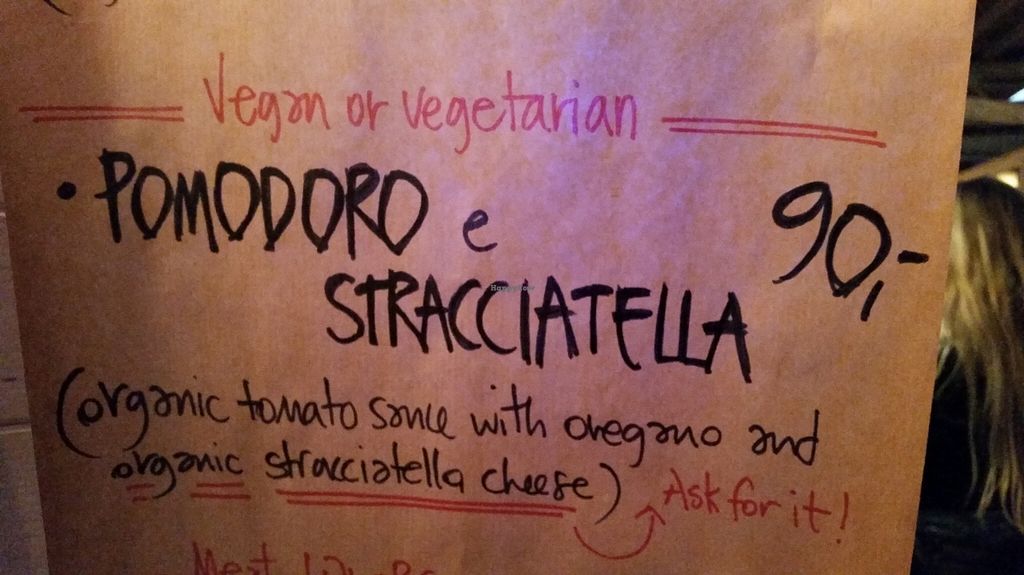 Vegan or vegetarian
• POMODORO e 90,-
STRACCIATELLA
(organic tomato sauce with oregano and
organic stracciatella cheese)
Ask for it!